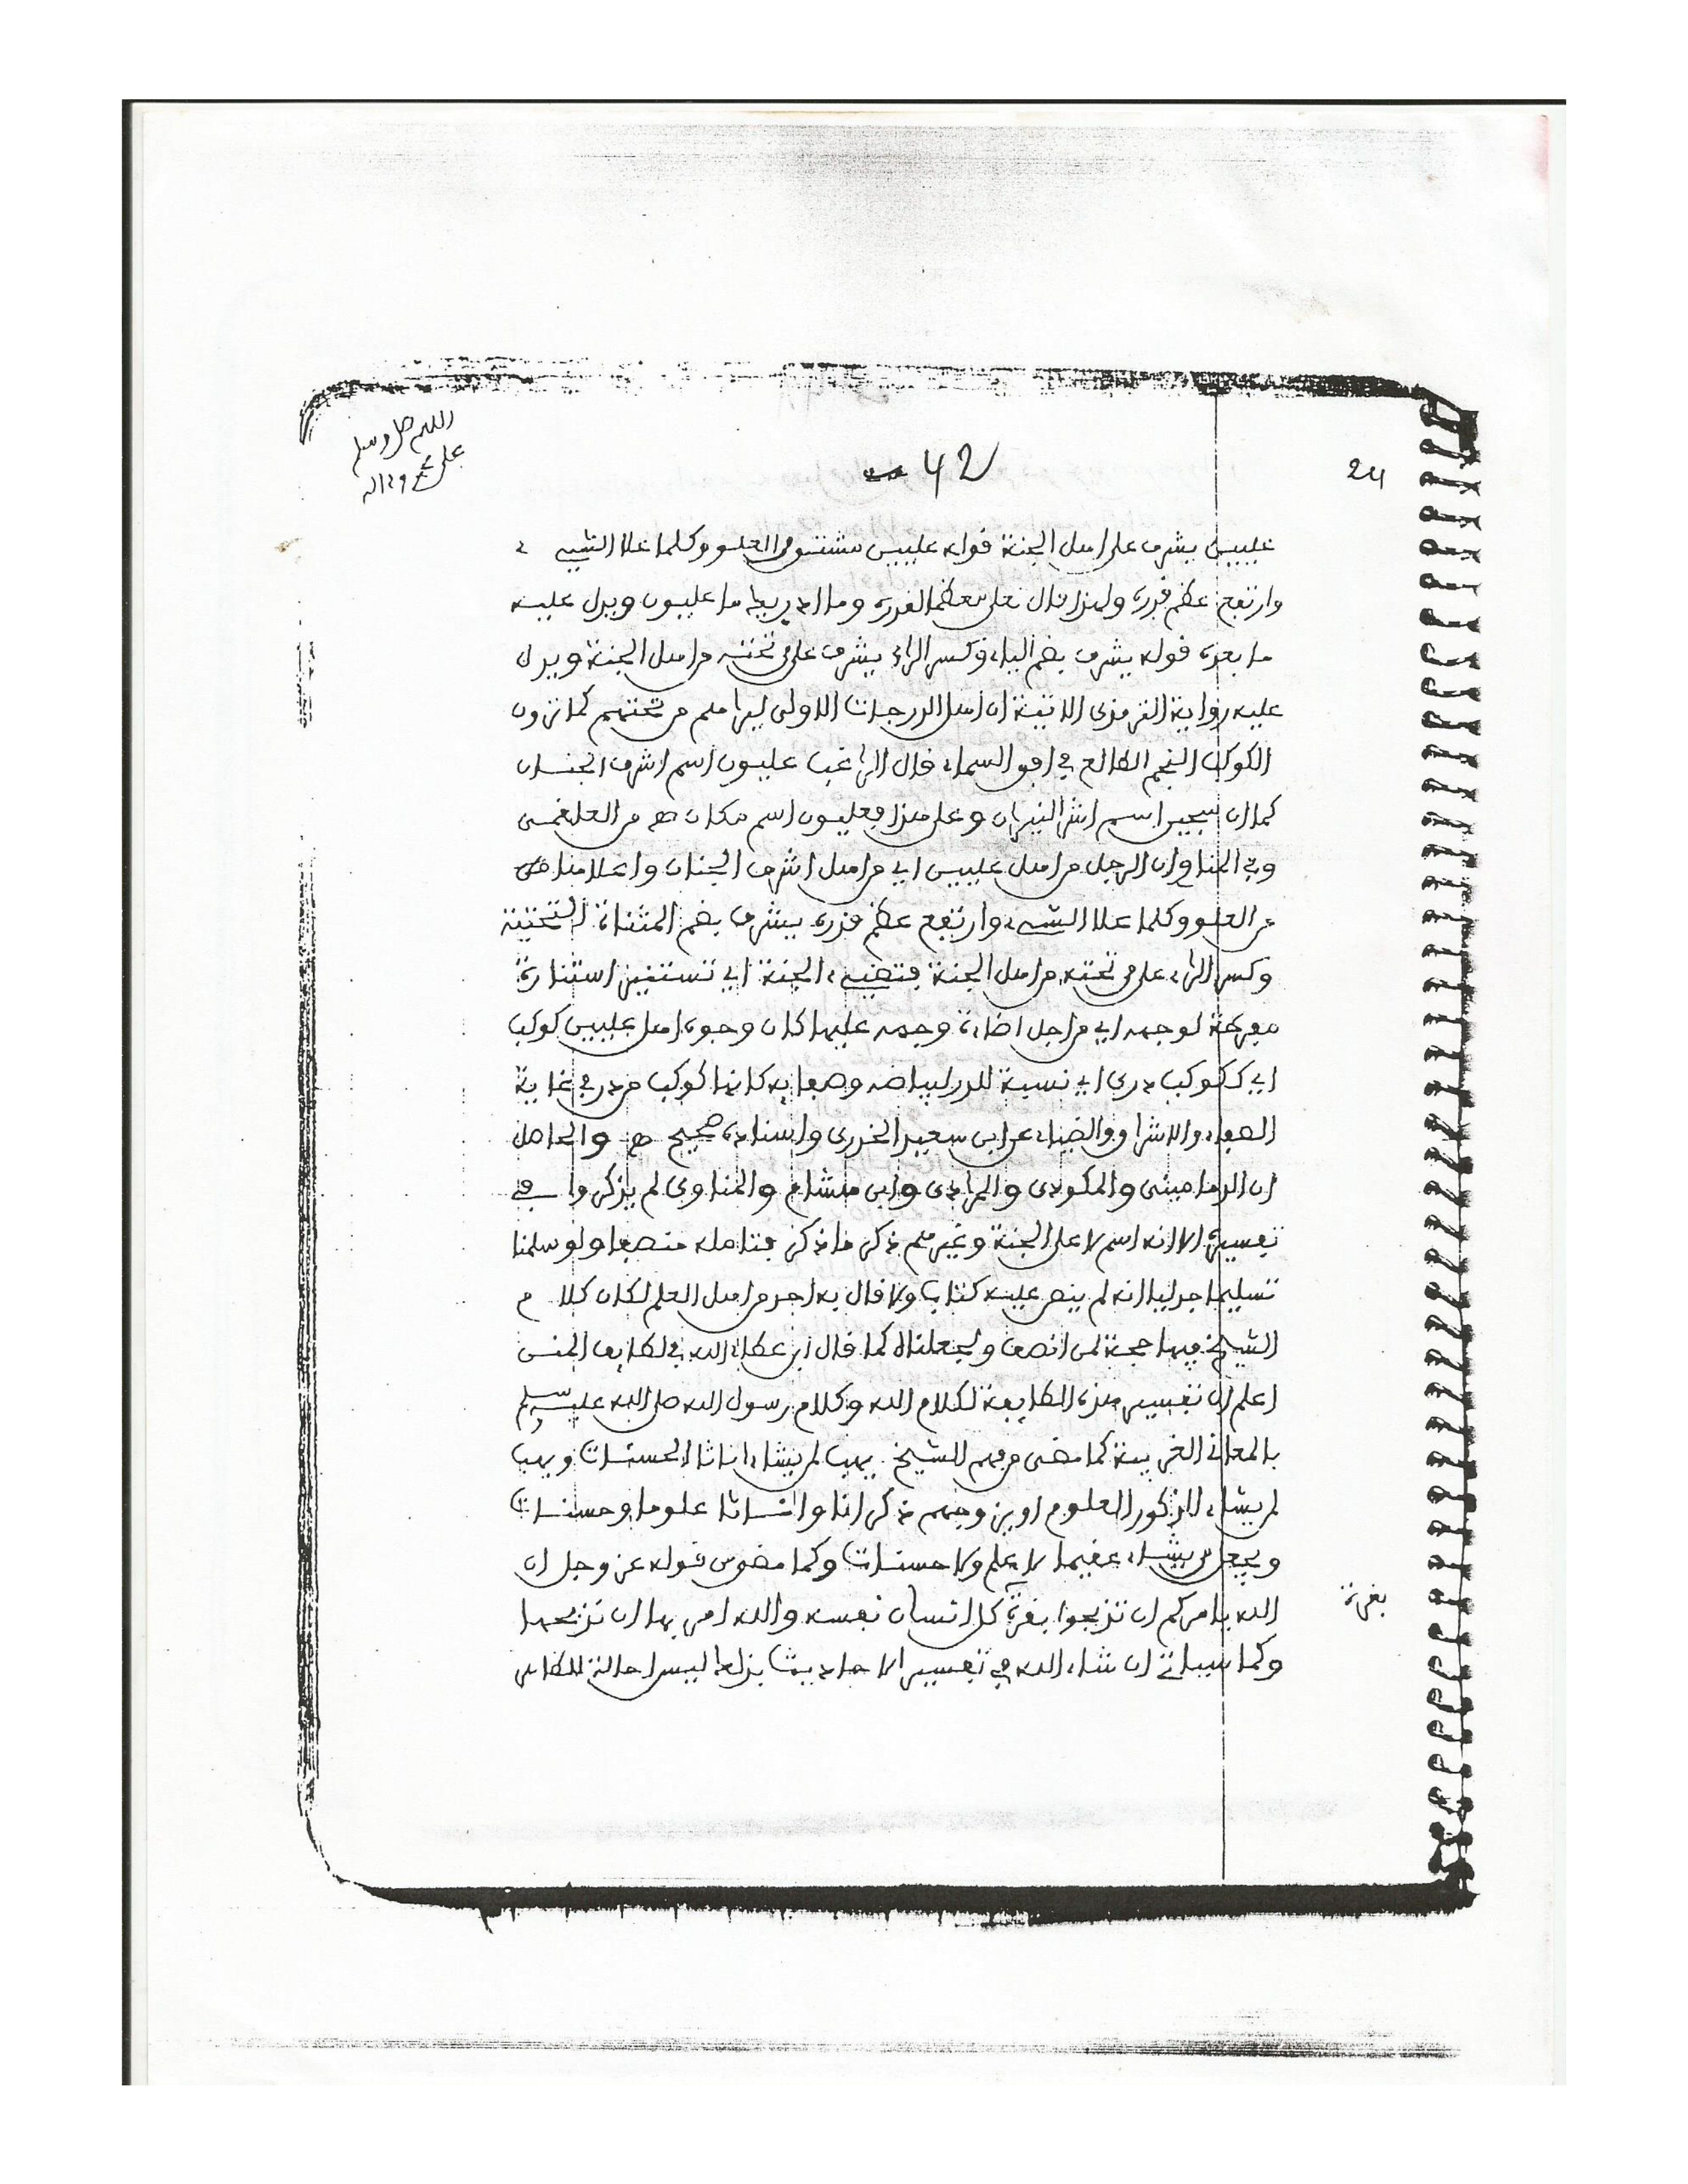 اللهم صل وسلم
على محمد وءاله
42
24
عليين يشرف على اهل الجنة قوله عليين مشتق من العلو وكلما علا الشيء
وارتفع عظم قدره ولهذا قال تعلى معظما لقدره وما ادريك ما عليون ويدل عليه
ما بعده قوله يشرف بضم الياء وكسر الراء يشرف على من تحته من اهل الجنة ويدل
عليه رواية الترمذي الاتية ان اهل الدرجات الاولى ليراهم من تحتهم كما ترون
الكوكب النجم الطالع في افق السماء قال الراغب عليون اسم اشرف الجنان
كما ان سجين اسم اشر النيران وعلى هذا فعليون اسم مكان هـ من العلقمي
وفي المناوي ان الرجل من اهل عليين اي من اهل اشرف الجنان واعلاها
من العلو وكلما علا الشيء وارتفع عظم قدره يشرف بضم المثناة التحتية
وكسر الراء على من تحته من اهل الجنة فتضيء الجنة اي تستنير استنارة
مفرطة لوجهه اي من اجل اضاءة وجهه عليها كان وجوه اهل عليين كوكب
اي ككوكب دري اي نسبة للدر لبياضه وصفايه كانها كوكب من در في غاية
الصفاء والاشراق والضياء عن ابي سعيد الخدري واسناده صحيح هـ والحاصل
ان الدماميني والمكودي والمرادي وابن هشام والمناوي لم يذكروا في
تفسيره الا انه اسم لاعلى الجنة وغيرهم ذكر ما ذكر فتامله منصفا ولو سلمنا
تسليما جدليا انه لم ينص عليه كتاب ولا قال به احد من اهل العلم لكان كلام
الشيخ فيها حجة لمن انصف ولجعلناه كما قال ابن عطاء الله في لطايف المنن
اعلم ان تفسير هذه الطايفة لكلام الله وكلام رسول الله صلى الله عليه وسلم
بالمعاني الغريبة كما مضى من فهم الشيخ يهب لمن يشاء اناثا الحسنات ويهب
لمن يشاء الذكور العلوم او يزوجهم ذكرانا واناثا علوما وحسنات
ويجعل من يشاء عقيما لا علم ولا حسنات وكما مضى من قوله عز وجل ان
الله يامركم ان تذبحوا بقرة كل انسان نفسه والله امر بها ان تذبحها
بقرة
وكما سياتي ان شاء الله في تفسير الاحاديث بذلك ليس احالة للظاهر